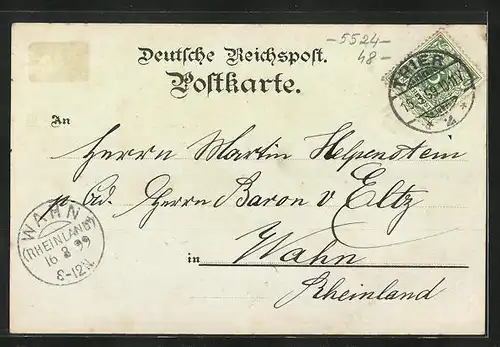 Deutsche Reichspost.
Postkarte.
-5524-
48-
TRIER
* 4 *
An
Herrn Martin Helpenstein
p. Ad. Herrn Baron v Eltz
in Wahn
Rheinland
WAHN
(RHEINLAND)
16 3 99
8-12V.